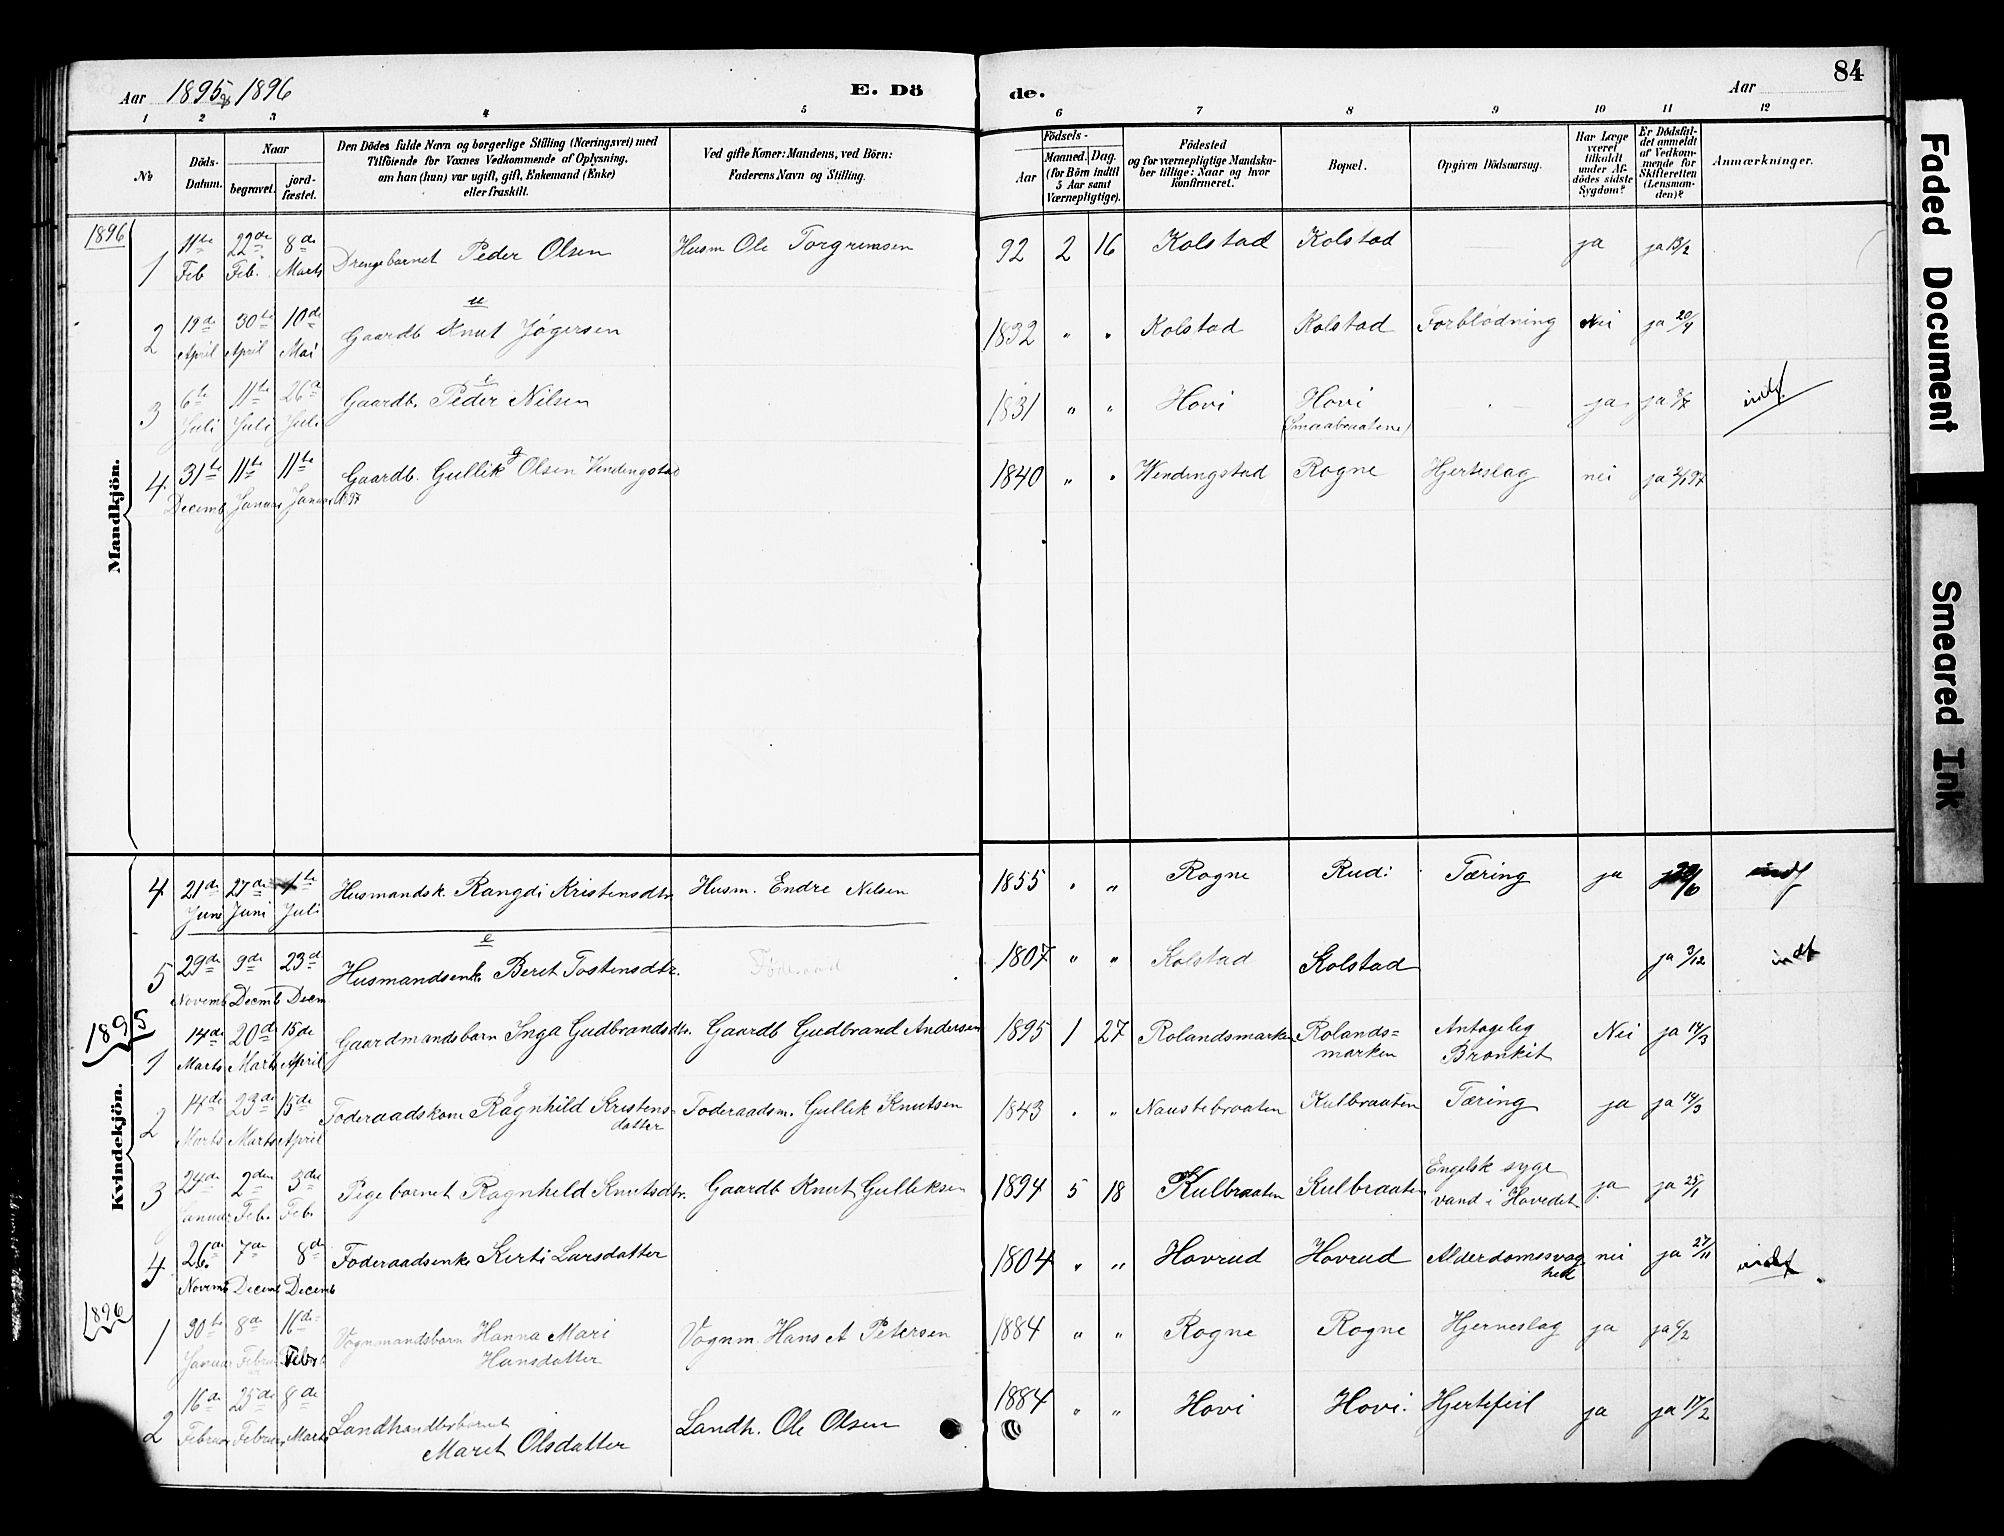 Aar 1895 & 1896 E. Dö de. Aar 84
1 2 3 4 5 6 7 8 9 10 11 12
No
Döds-Datum.
Naar
begravet.
jord-fæstet.
Den Dödes fulde Navn og borgerlige Stilling (Næringsvei) med
Tilföiende for Voxnes Vedkommende af Oplysning,
om han (hun) var ugift, gift, Enkemand (Enke)
eller fraskilt.
Ved gifte Koner: Mandens, ved Börn:
Faderens Navn og Stilling.
Födsels-
Aar
Maaned. Dag.
(for Börn indtil
5 Aar samt
Værnepligtige).
Födested
og for værnepligtige Mandska-
ber tillige: Naar og hvor
konfirmeret.
Bopæl.
Opgiven Dödsaarsag.
Har Læge
været
tilkaldt
under Af-
dödes sidste
Sygdom?
Er Dödsfal-
det anmeldt
af Vedkom-
mende for
Skifteretten
(Lensman-
den)?
Anmærkninger.
Mandkjön.
1896
1 11te Feb 22de Feb. 8de Marts Drengebarnet Peder Olsen Husm Ole Torgrimsen 92 2 16 Kolstad Kolstad — ja ja 13/2
2 19de April 30te April 10de Mai Gaardb Knut Jögersen u 1832 " " Kolstad Kolstad Forblödning Nei ja 20/4
3 6te Juli 11te Juli 26de Juli Gaardb. Peder Nilsen e 1831 " " Hovi Hovi (Smaabraatene) — ja ja 8/7 indf
4 31te Decemb 11te Januar 11te Januar 1897 Gaardb. Gullik Olsen Vindingstad g 1840 " " Windingstad Rogne Hjerteslag nei ja 2/1 97
Kvindekjön.
4 21de Juni 27de Juni 4te Juli Husmandsk. Rangdi Kristensdtr Husm. Endre Nilsen 1855 " " Rogne Rudi Tæring ja indf
5 29de Novemb 9de Decmb 23d Decm Husmandsenk. Beret Tostensdtr. e Föderaad 1807 " " Kolstad Kolstad ja 3/12 indf
1895
1 14de Marts 20de Marts 15de April Gaardmandsbarn Inga Gudbrandsdtr. Gaardb Gudbrand Andersen 1895 1 27 Rolandsmarken Rolands=
marken Antagelig
Bronkit Nei ja 14/3
2 14de Marts 23de Marts 15de April Foderaadskone Ragnhild Kristens-
datter g Foderaadsm. Gullik Knutsen 1843 " " Naustebraaten Kulbraaten Tæring ja ja 14/3
3 24de Januar 2den Feb. 3die Feb. Pigebarnet Ragnhild Knutsdtr. Gaardb Knut Gulliksen 1894 5 18 Kulbraaten Kulbraaten Engelsk syge
vand i Hovedet ja ja 25/1
4 26de Novemb 7de Decemb 8de Decemb Foderaadsenke Kirti Larsdatter 1804 " " Hovrud Hovrud Alderdomssvag
hed nei ja 27/11 indf
1896
1 30te Januar 8de Februar 16de Febr Vognmandsbarn Hanna Mari
Hansdatter Vognm. Hans A Petersen 1884 " " Rogne Rogne Hjerneslag ja ja 6/2
2 16de Februar 25de Februar 8de Marts Landhandlerbarnet
Marit Olsdatter Landh. Ole Olsen 1884 " " Hovi Hovi. Hjertefeil ja ja 17/2
Faded Document
Smeared Ink